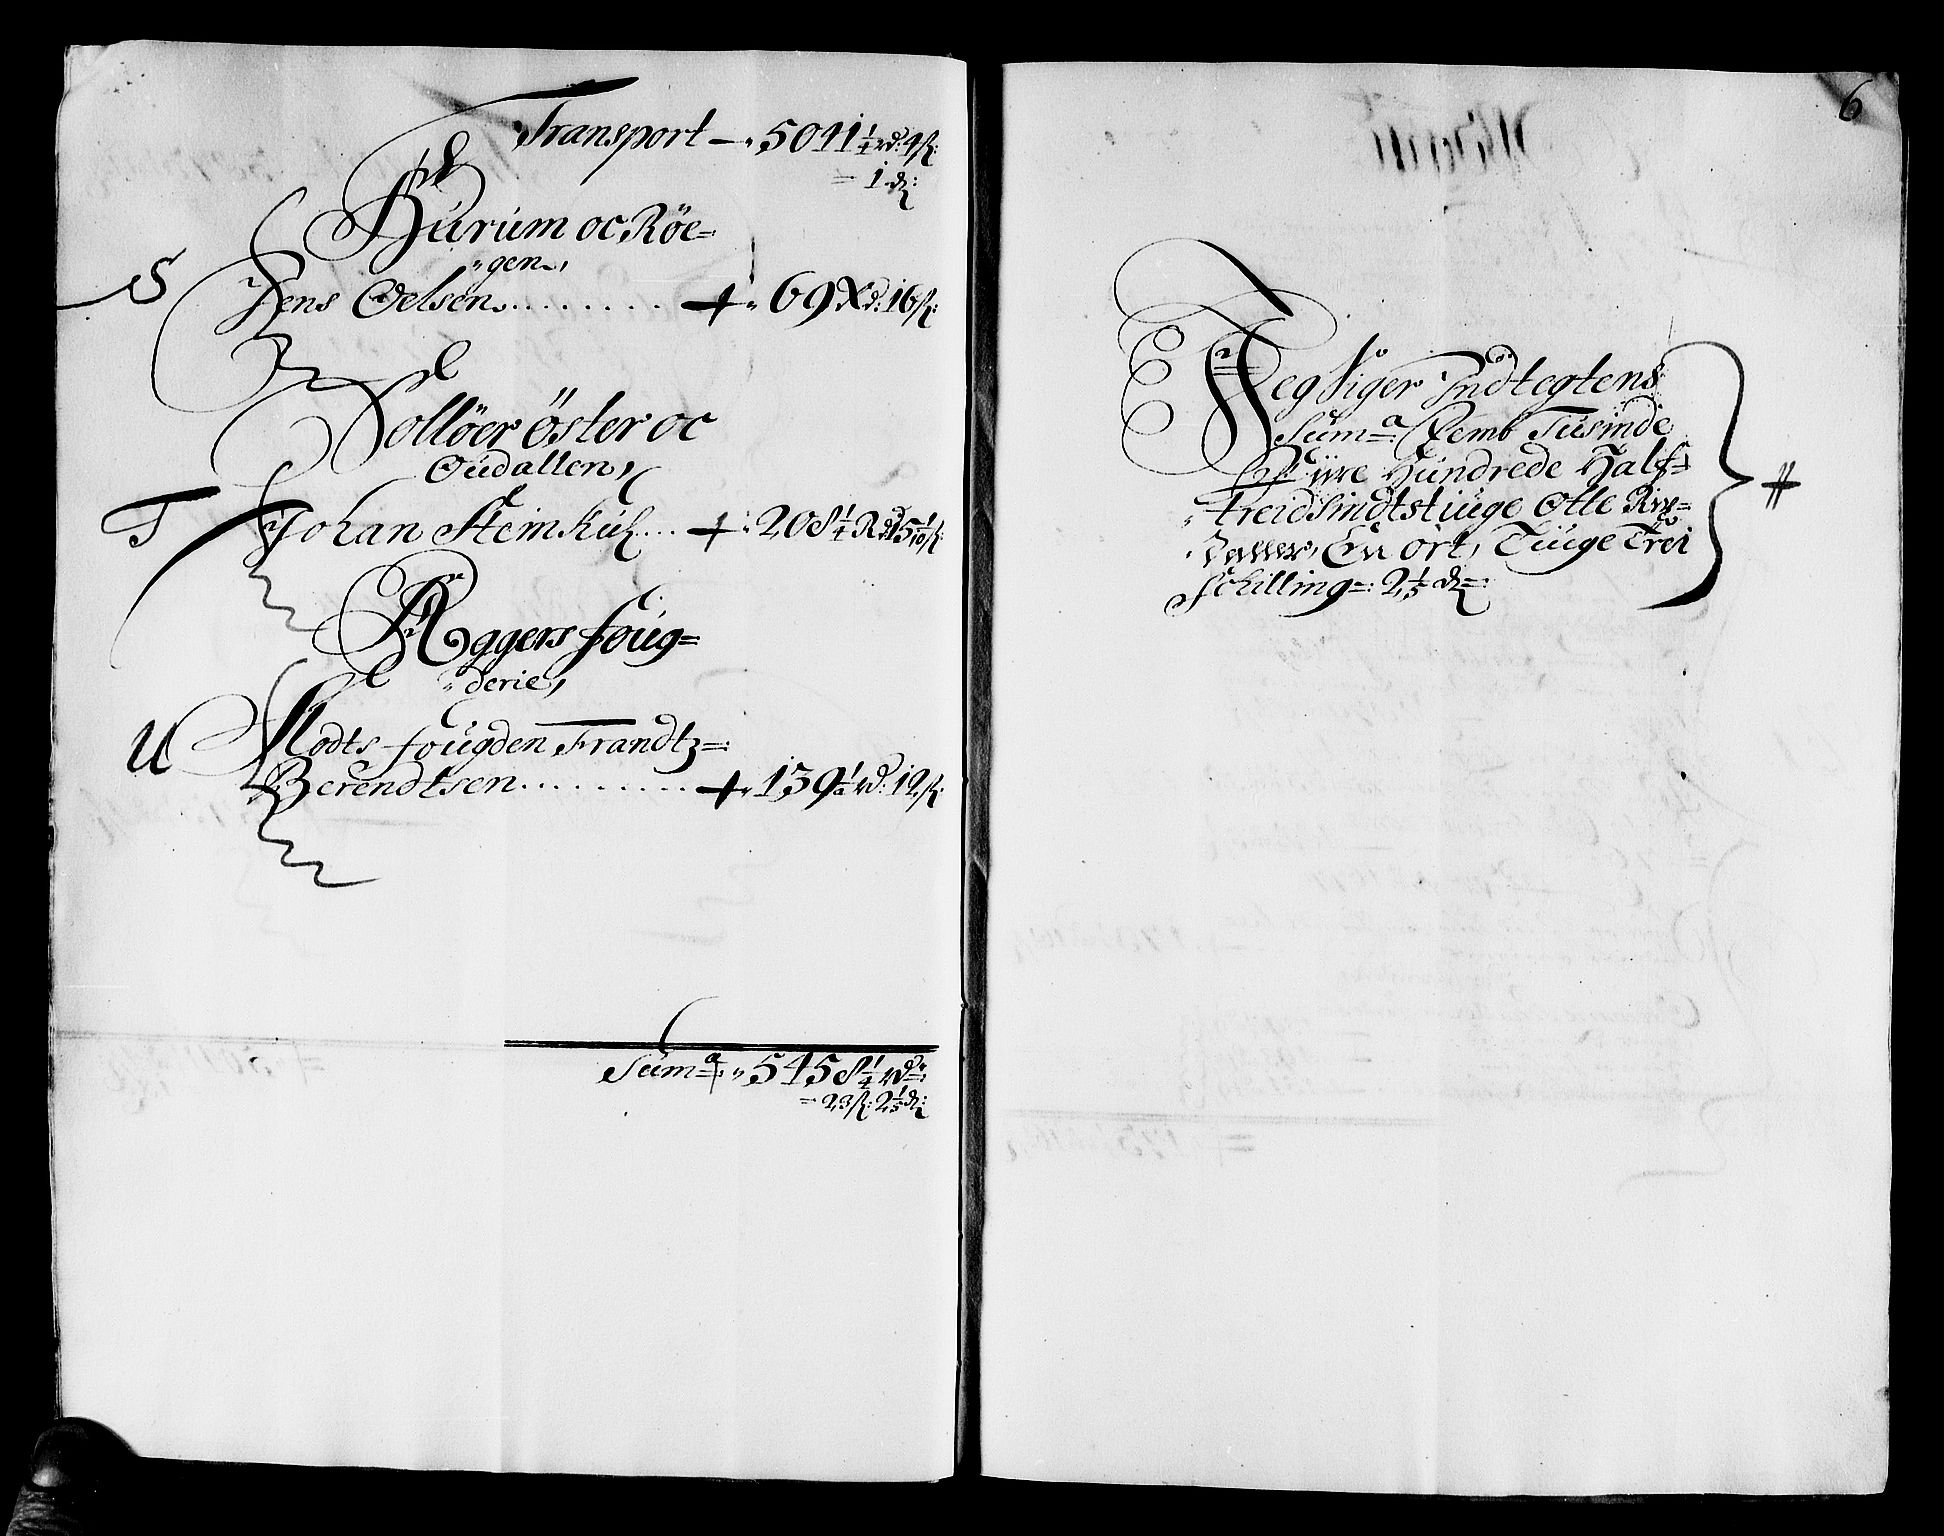 Transport – 5041 1/4 rd: 4 ß:
= 1 d:
Hurum oc Röe=
gen,
S Jens Oelsen ........ + 69 Rd: 16 ß:
Solløer öster oc
Oudallen,
T Johan Steinkuhl .... + 208 1/4 Rd 15 1/10 ß:
Aggers foug=
derie,
U Slodts fougden Frandtz=
Berendtsen ......... + 139 1/2 rd: 12 ß:
Sum=a 5458 1/4 rd=:
= 23 ß: 2 1/5 d:
6
Er Siger Indtegtens
Sum=a Femb Tusinde
Fyre Hundrede Half=
treidsindtstiuge Otte Rix=
Daller, En ort, Tiuge Trei
Schilling=: 2 1/5 d=: